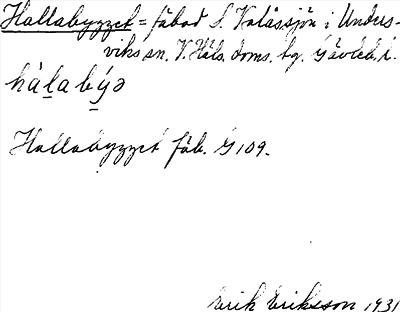 Hallabygget = fäbod S. Valåssjön i Unders-
viks sn. V. Häls. doms. hg. Gävleb. l.
hàl̠ab̠ýə
Hallabygget fäb. G 109.
Erik Eriksson 1931